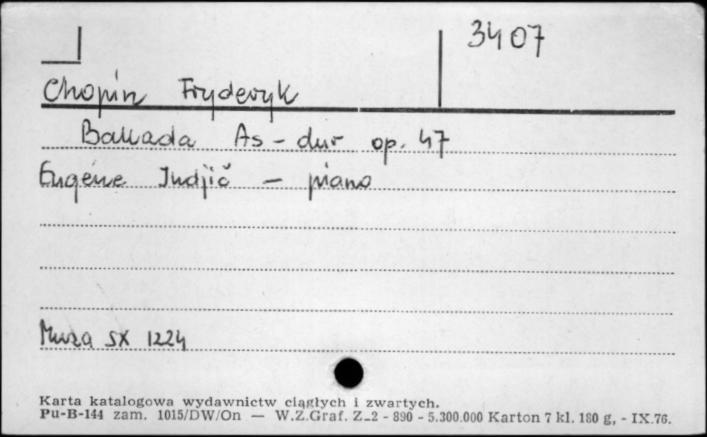 3407
Chopin Fryderyk
Ballada As-dur op. 47
Eugéne Indjič - piano
Muza SX 1224
Karta katalogowa wydawnictw ciągłych i zwartych.
Pu-B-144 zam. 1015/DW/On — W.Z.Graf. Z-2 - 890 - 5.300.000 Karton 7 kl. 180 g, - IX.76.